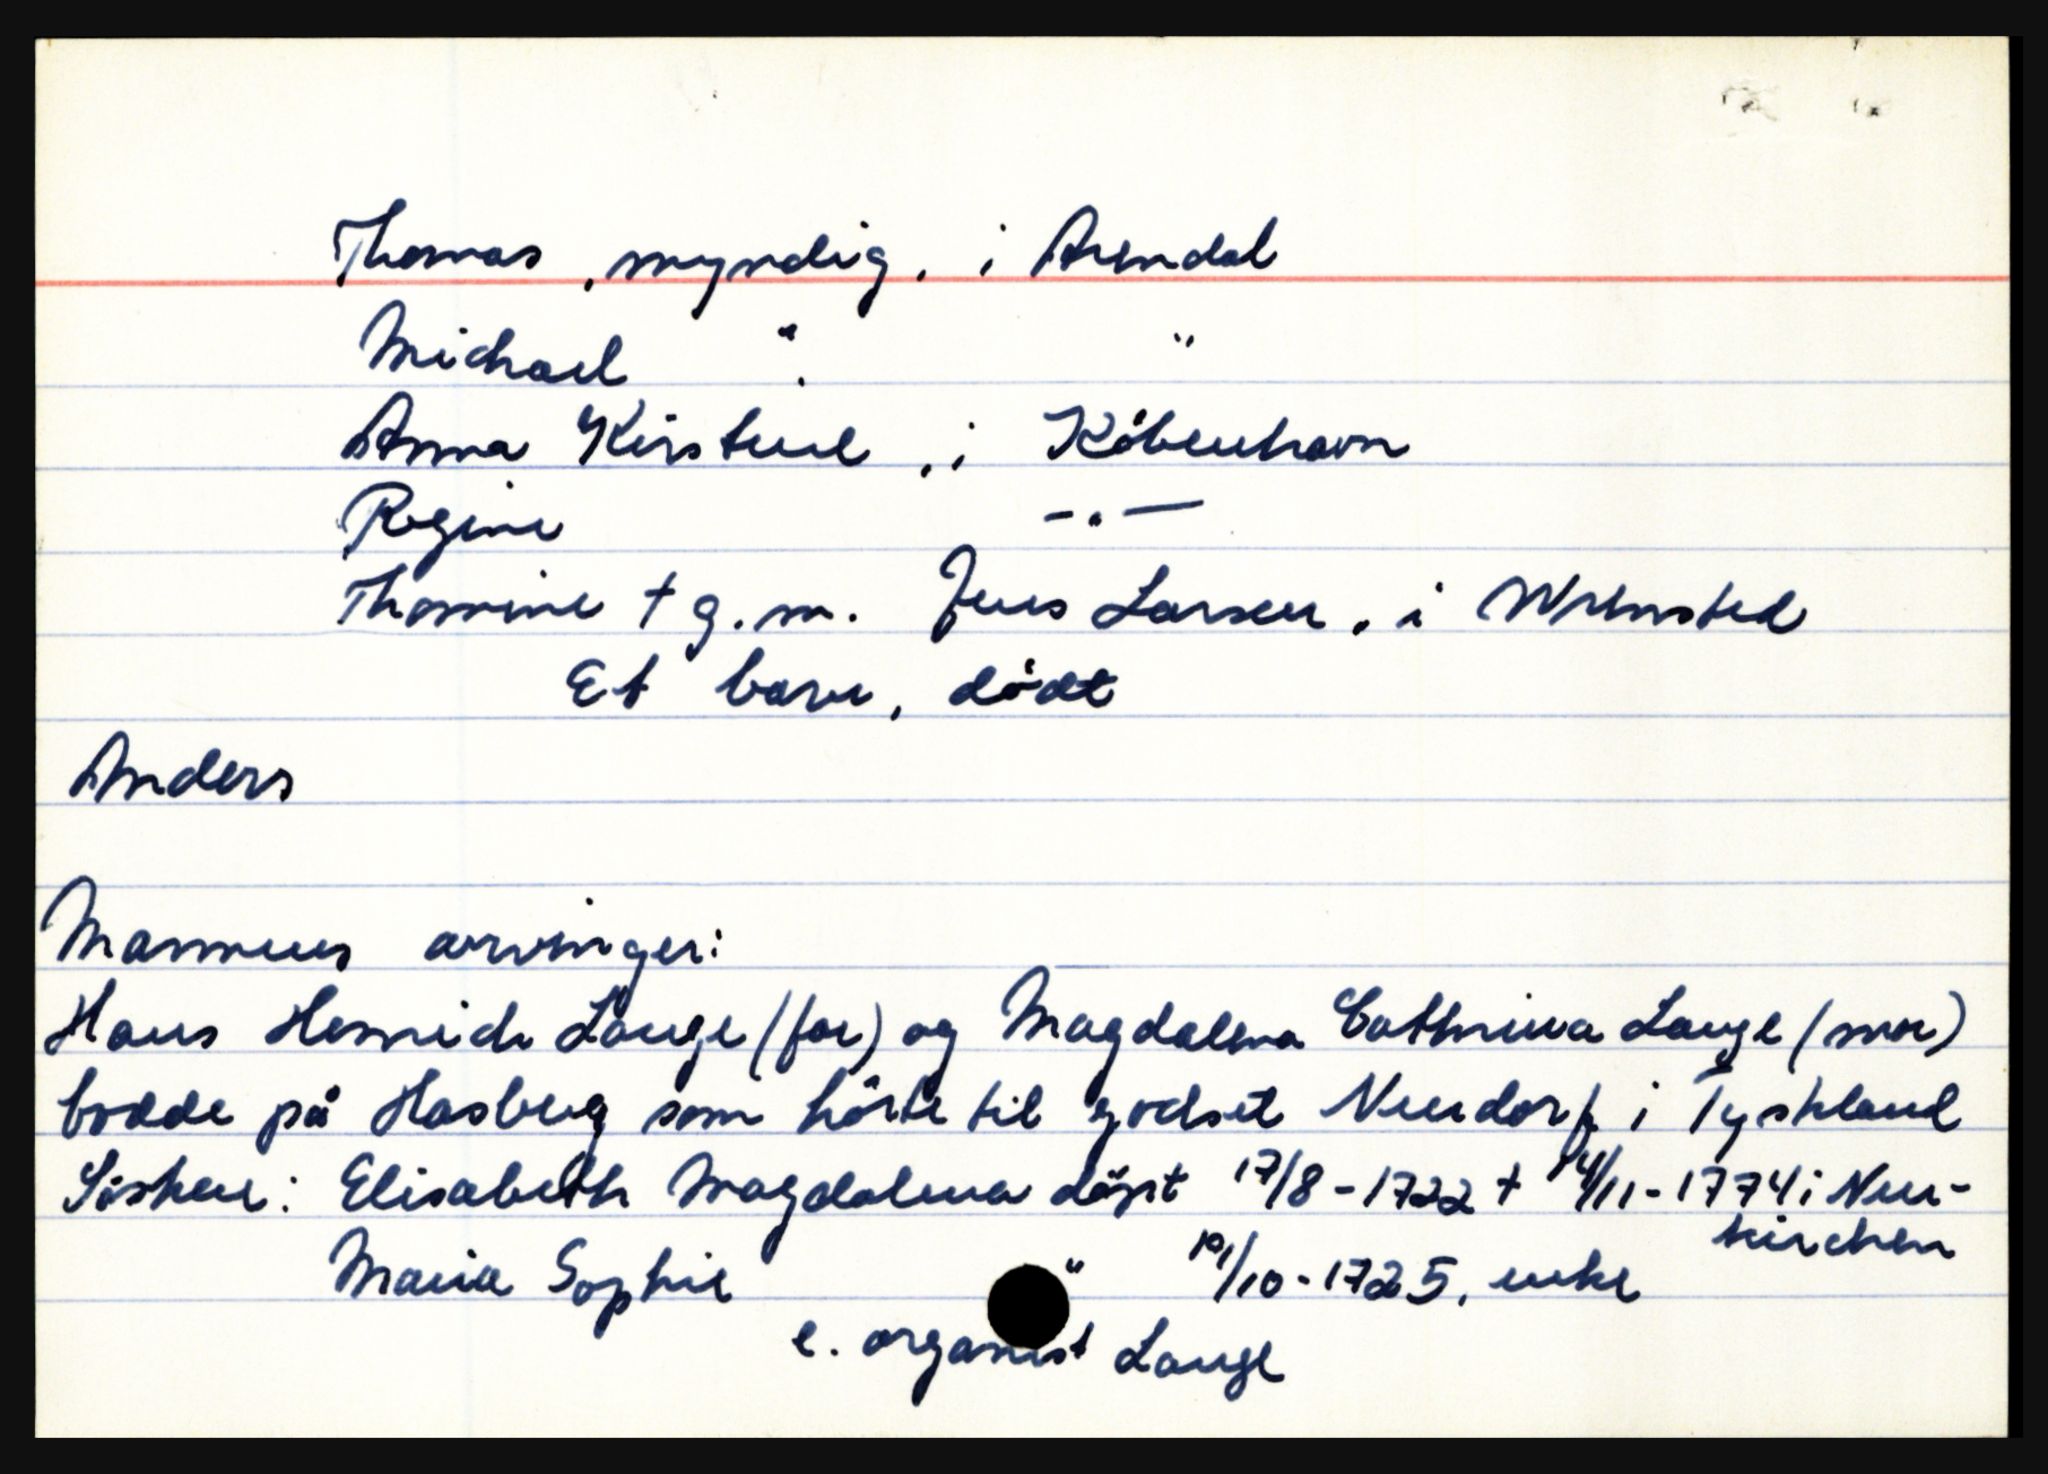 Thomas, myndig, i Arendal
Michael " . "
Anna Kirstine, i København
Regine - " -
Thomine † g.m. Jens Larsen, i Wrensted
Et barn, dödt
Anders
Mannens arvinger:
Hans Henrich Lange (far) og Magdalena Cathrina Lange (mor)
bodde på Hasberg som hörte til godset Neudorf i Tyskland
Søsken: Elisabeth Magdalena döpt 17/8-1722 † 14/11-1774 i Neu-
kirchen
Maria Sophie " 19/10-1725, enke
e. organist Lange